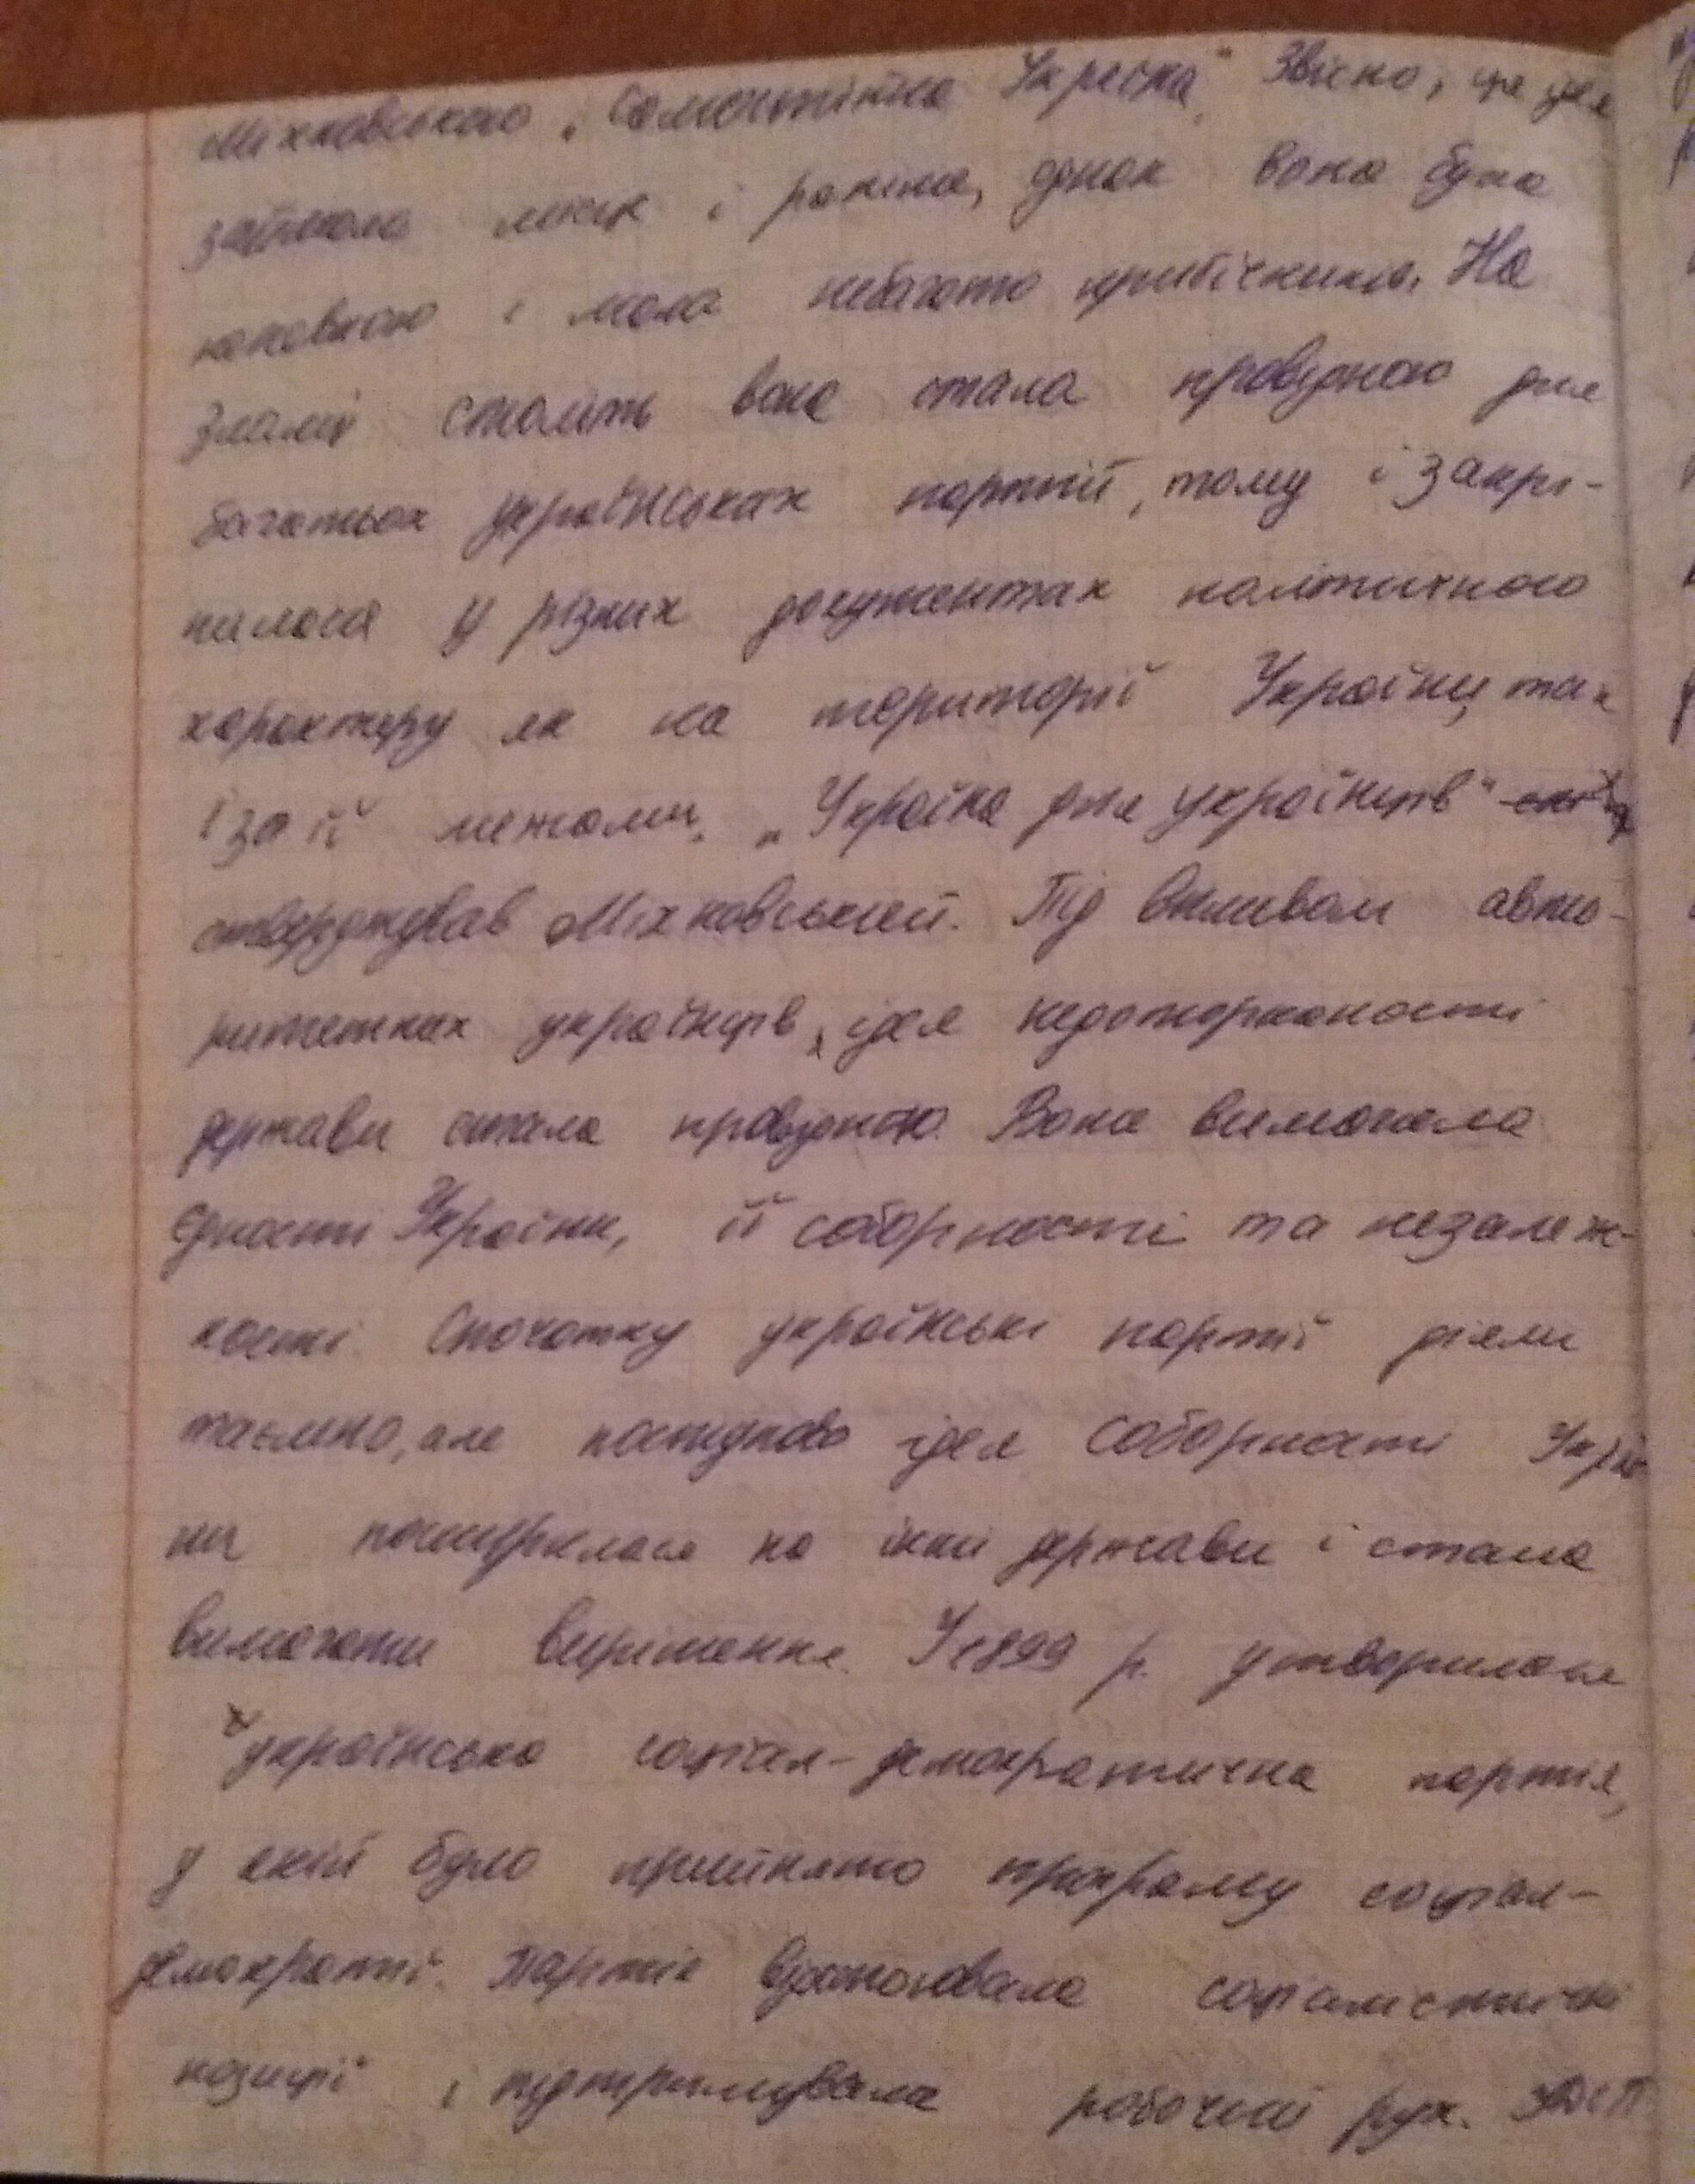 Міхновського „Самостійна Україна". Звісно, ця ідея
займала місце і раніше, однак вона була
і мала небагато прибічників. На
зламі століть вона стала провідною для
багатьох українських партій, тому і закрі-
пилася у різних документах політичного
характеру як на території України, так
і за її межами. „Україна для українців"
стверджував Міхновський. Під впливом авто-
ритетних українців, ідея недоторканості
держави стала провідною. Вона вимагала
єдності України, її соборності та незалеж-
ності. Спочатку українські партії діяли
таємно, але поступово ідея соборності Украї
ни поширилася на інші держави і стала
вимагати вирішення. У 1899 р. утворилася
українська соціал-демократична партія,
у якій було прийнято програму соціал-
демократії. Партія відстоювала соціалістичні
позиції і підтримувала робочий рух.